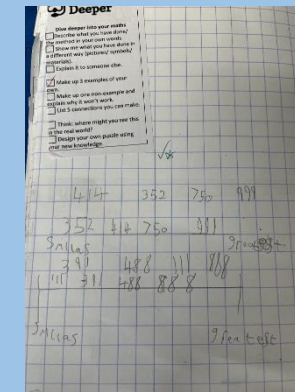 Deeper
Dive deeper into your maths
Describe what you have done/
the method in your own words
Show me what you have done in
a different way (pictures/ symbols/
materials).
Explain it to someone else.
Make up 3 examples of your
own.
Make up one non-example and
explain why it won't work.
List 5 connections you can make.
Think: where might you see this
in the real world?
Design your own puzzle using
your new knowledge.
414 352 750 999
352 414 750
391 488 111 888
111 391 488 888